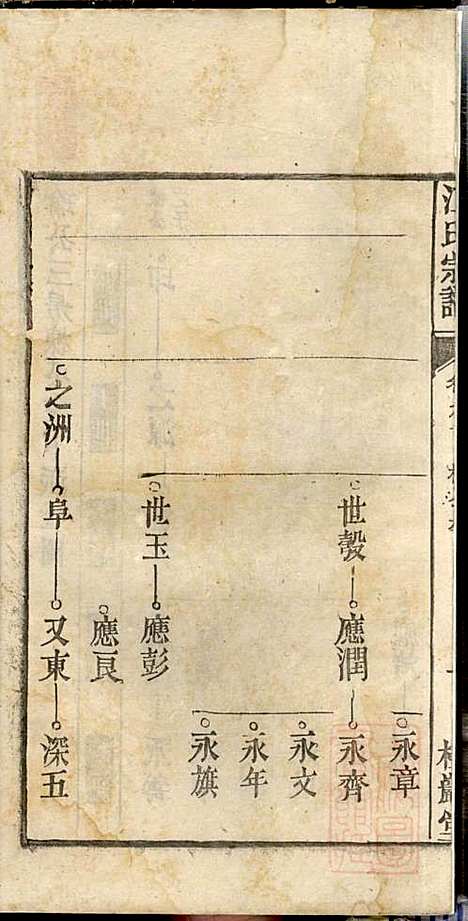 江氏宗譜
永章
世彀 應潤 永齊
永文
永年
永旗
世玉 應彭
應良
之洲 阜 又東 深五